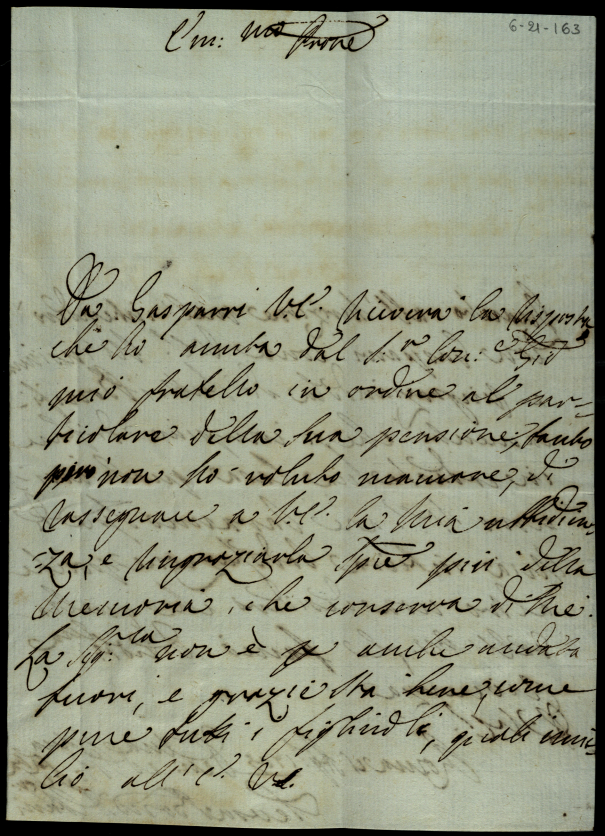 6-21-163
Em: mo Prone
Da Gasparri V.E. riceverà la risposta
che ho avuta dal S.r Con:
mio fratello in ordine al par-
ticolare della sua pensione, tanto
più non ho voluto mancare, di
rassegnare a V.E. la mia ubbidien-
-za, e ringraziarla spre più della
Memoria, che conserva di Me.
La Sig.ra non è p anche andata
fuori, e grazie sta bene, come
pure tutti i figliuoli, quali umi-
all' E. V.